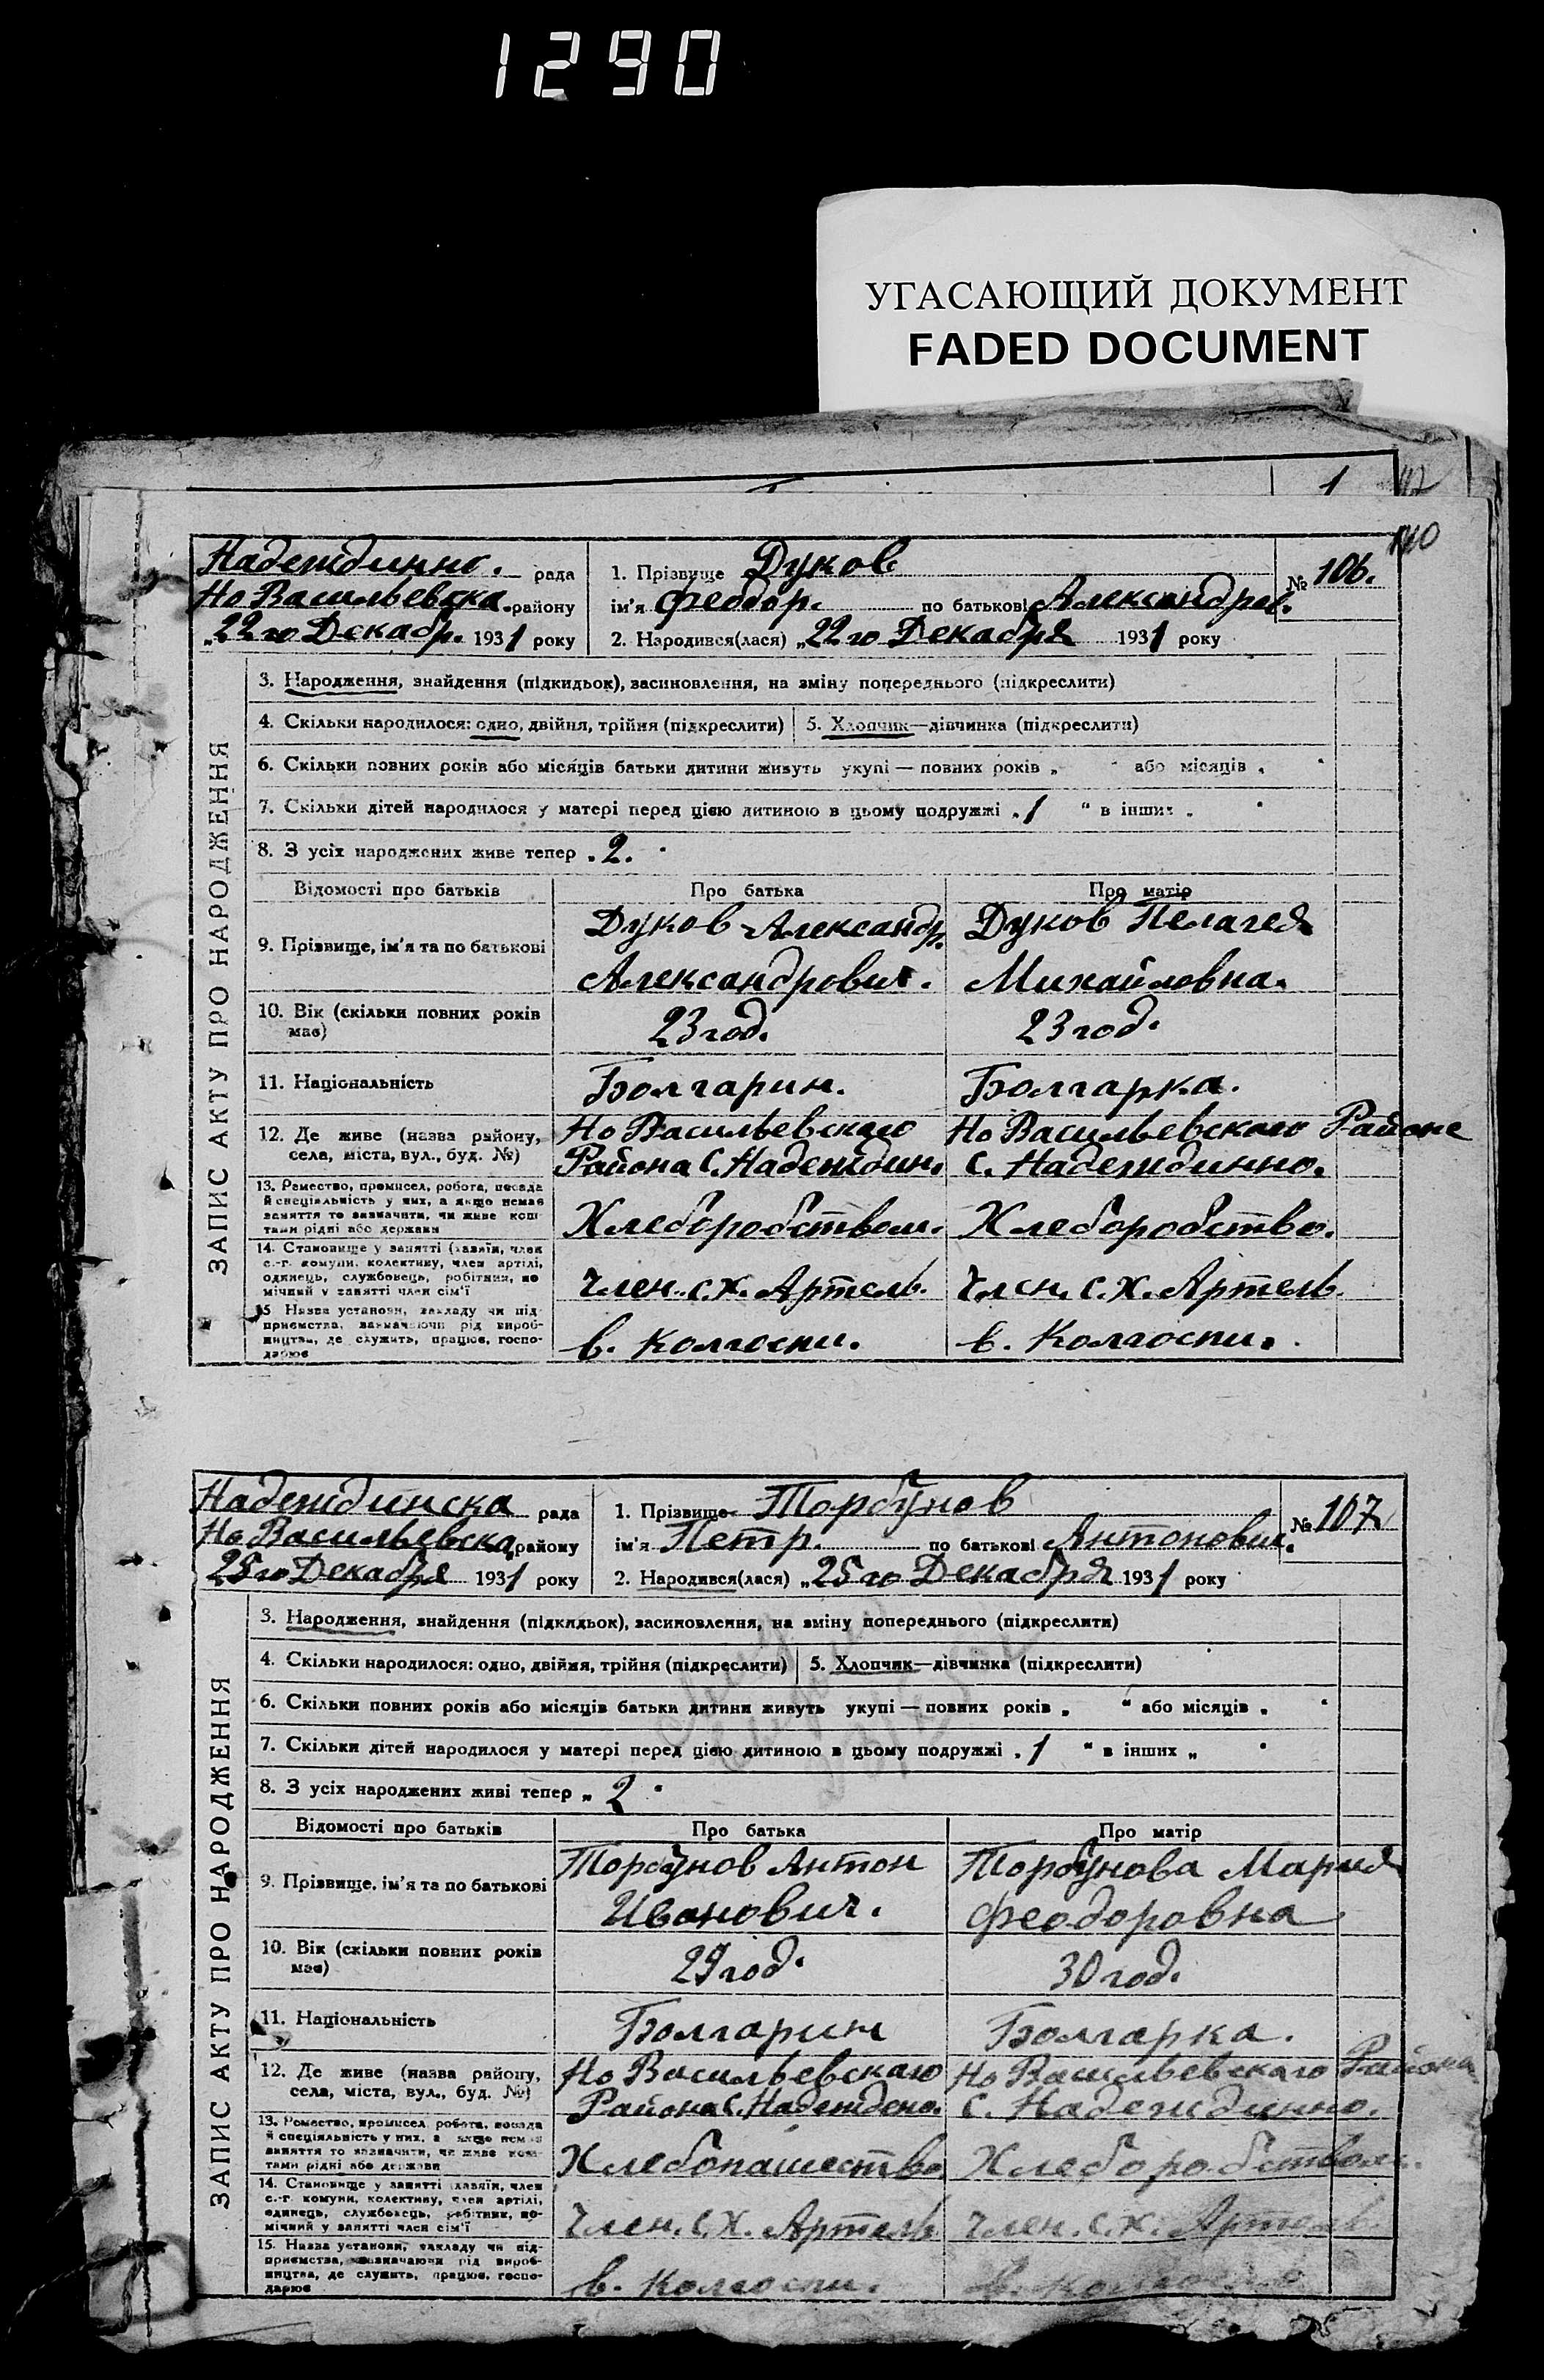 1290
УГАСАЮЩИЙ ДОКУМЕНТ
FADED DOCUMENT
1
112
110
Надеждинно. рада
Но Васильевска. району
„22го Декабр. 1931 року
1. Прізвище Дуков
ім'я Феодор. по батькові Александров.
№ 106.
2. Народився(лася) „22го Декабря 1931 року
ЗАПИС АКТУ ПРО НАРОДЖЕННЯ
3. Народження, знайдення (підкидьок), засиновлення, на зміну попереднього (підкреслити)
4. Скільки народилося: одно, двійня, трійня (підкреслити) 5. Хлопчик—дівчинка (підкреслити)
6. Скільки повних років або місяців батьки дитини живуть укупі — повних років „ " або місяців „ "
7. Скільки дітей народилося у матері перед цією дитиною в цьому подружжі „1 " в інших „ "
8. З усіх народжених живе тепер „2. "
Відомості про батьків Про батька Про матір
9. Прізвище, ім'я та по батькові
Дуков Александр.
Александрович.
Дуков Пелагея
Михайловна.
10. Вік (скільки повних років має)
23 год.
23 год.
11. Національність
Болгарин.
Болгарка.
12. Де живе (назва району,
села, міста, вул., буд. №)
Но Васильевского
Района С. Надеждин.
Но Васильевского Районе
С. Надеждинно.
13. Ремество, промисел, робота, посада
й спеціяльність у них, а якщо немає
заняття то зазначити, чи живе кош-
тами рідні або держави
Хлеборобством.
Хлеборобство.
14. Становище у занятті (хазяїн, член
с.-г. комуни, колективу, член артілі,
одинець, службовець, робітник, по-
мічний у занятті член сім'ї
Член. с.х. Артель.
Член. с.х. Артель
15 Назва установи, закладу чи під-
приємства, зазначаючи рід вироб-
ництва, де служить, працює, госпо-
дарює
в. Колгоспи.
в. Колгоспи.
Надеждинска рада
Но Васильевска. району
25го Декабря 1931 року
1. Прізвище Торбунов
ім'я Петр. по батькові Антонович.
№ 107
2. Народився(лася) „25го Декабря 1931 року
ЗАПИС АКТУ ПРО НАРОДЖЕННЯ
3. Народження, знайдення (підкидьок), засиновлення, на зміну попереднього (підкреслити)
4. Скільки народилося: одно, двійня, трійня (підкреслити) 5. Хлопчик—дівчинка (підкреслити)
6. Скільки повних років або місяців батьки дитини живуть укупі — повних років „ " або місяців „ "
7. Скільки дітей народилося у матері перед цією дитиною в цьому подружжі „1 " в інших „ "
8. З усіх народжених живі тепер „2 "
Відомості про батьків Про батька Про матір
9. Прізвище, ім'я та по батькові
Торбунов Антон
Иванович.
Торбунова Мария
Феодоровна
10. Вік (скільки повних років має)
29 год.
30 год.
11. Національність
Болгарин
Болгарка.
12. Де живе (назва району,
села, міста, вул., буд. №)
Но Васильевскаго
Района С. Надеждено.
Но Васильевскаго Района
С. Надеждинно.
13. Ремество, промисел, робота, посада
й спеціяльність у них, а якщо немає
заняття то зазначити, чи живе кош-
тами рідні або держави
Хлебопашество
Хлеборобством.
14. Становище у занятті (хазяїн, член
с.-г. комуни, колективу, член артілі,
одинець, службовець, робітник, по-
мічний у занятті член сім'ї
Член. с.х. Артель
Член. с.х. Артель.
15. Назва установи, закладу чи під-
приємства, зазначаючи рід вироб-
ництва, де служить, працює, госпо-
дарює
в. Колгоспи.
в.